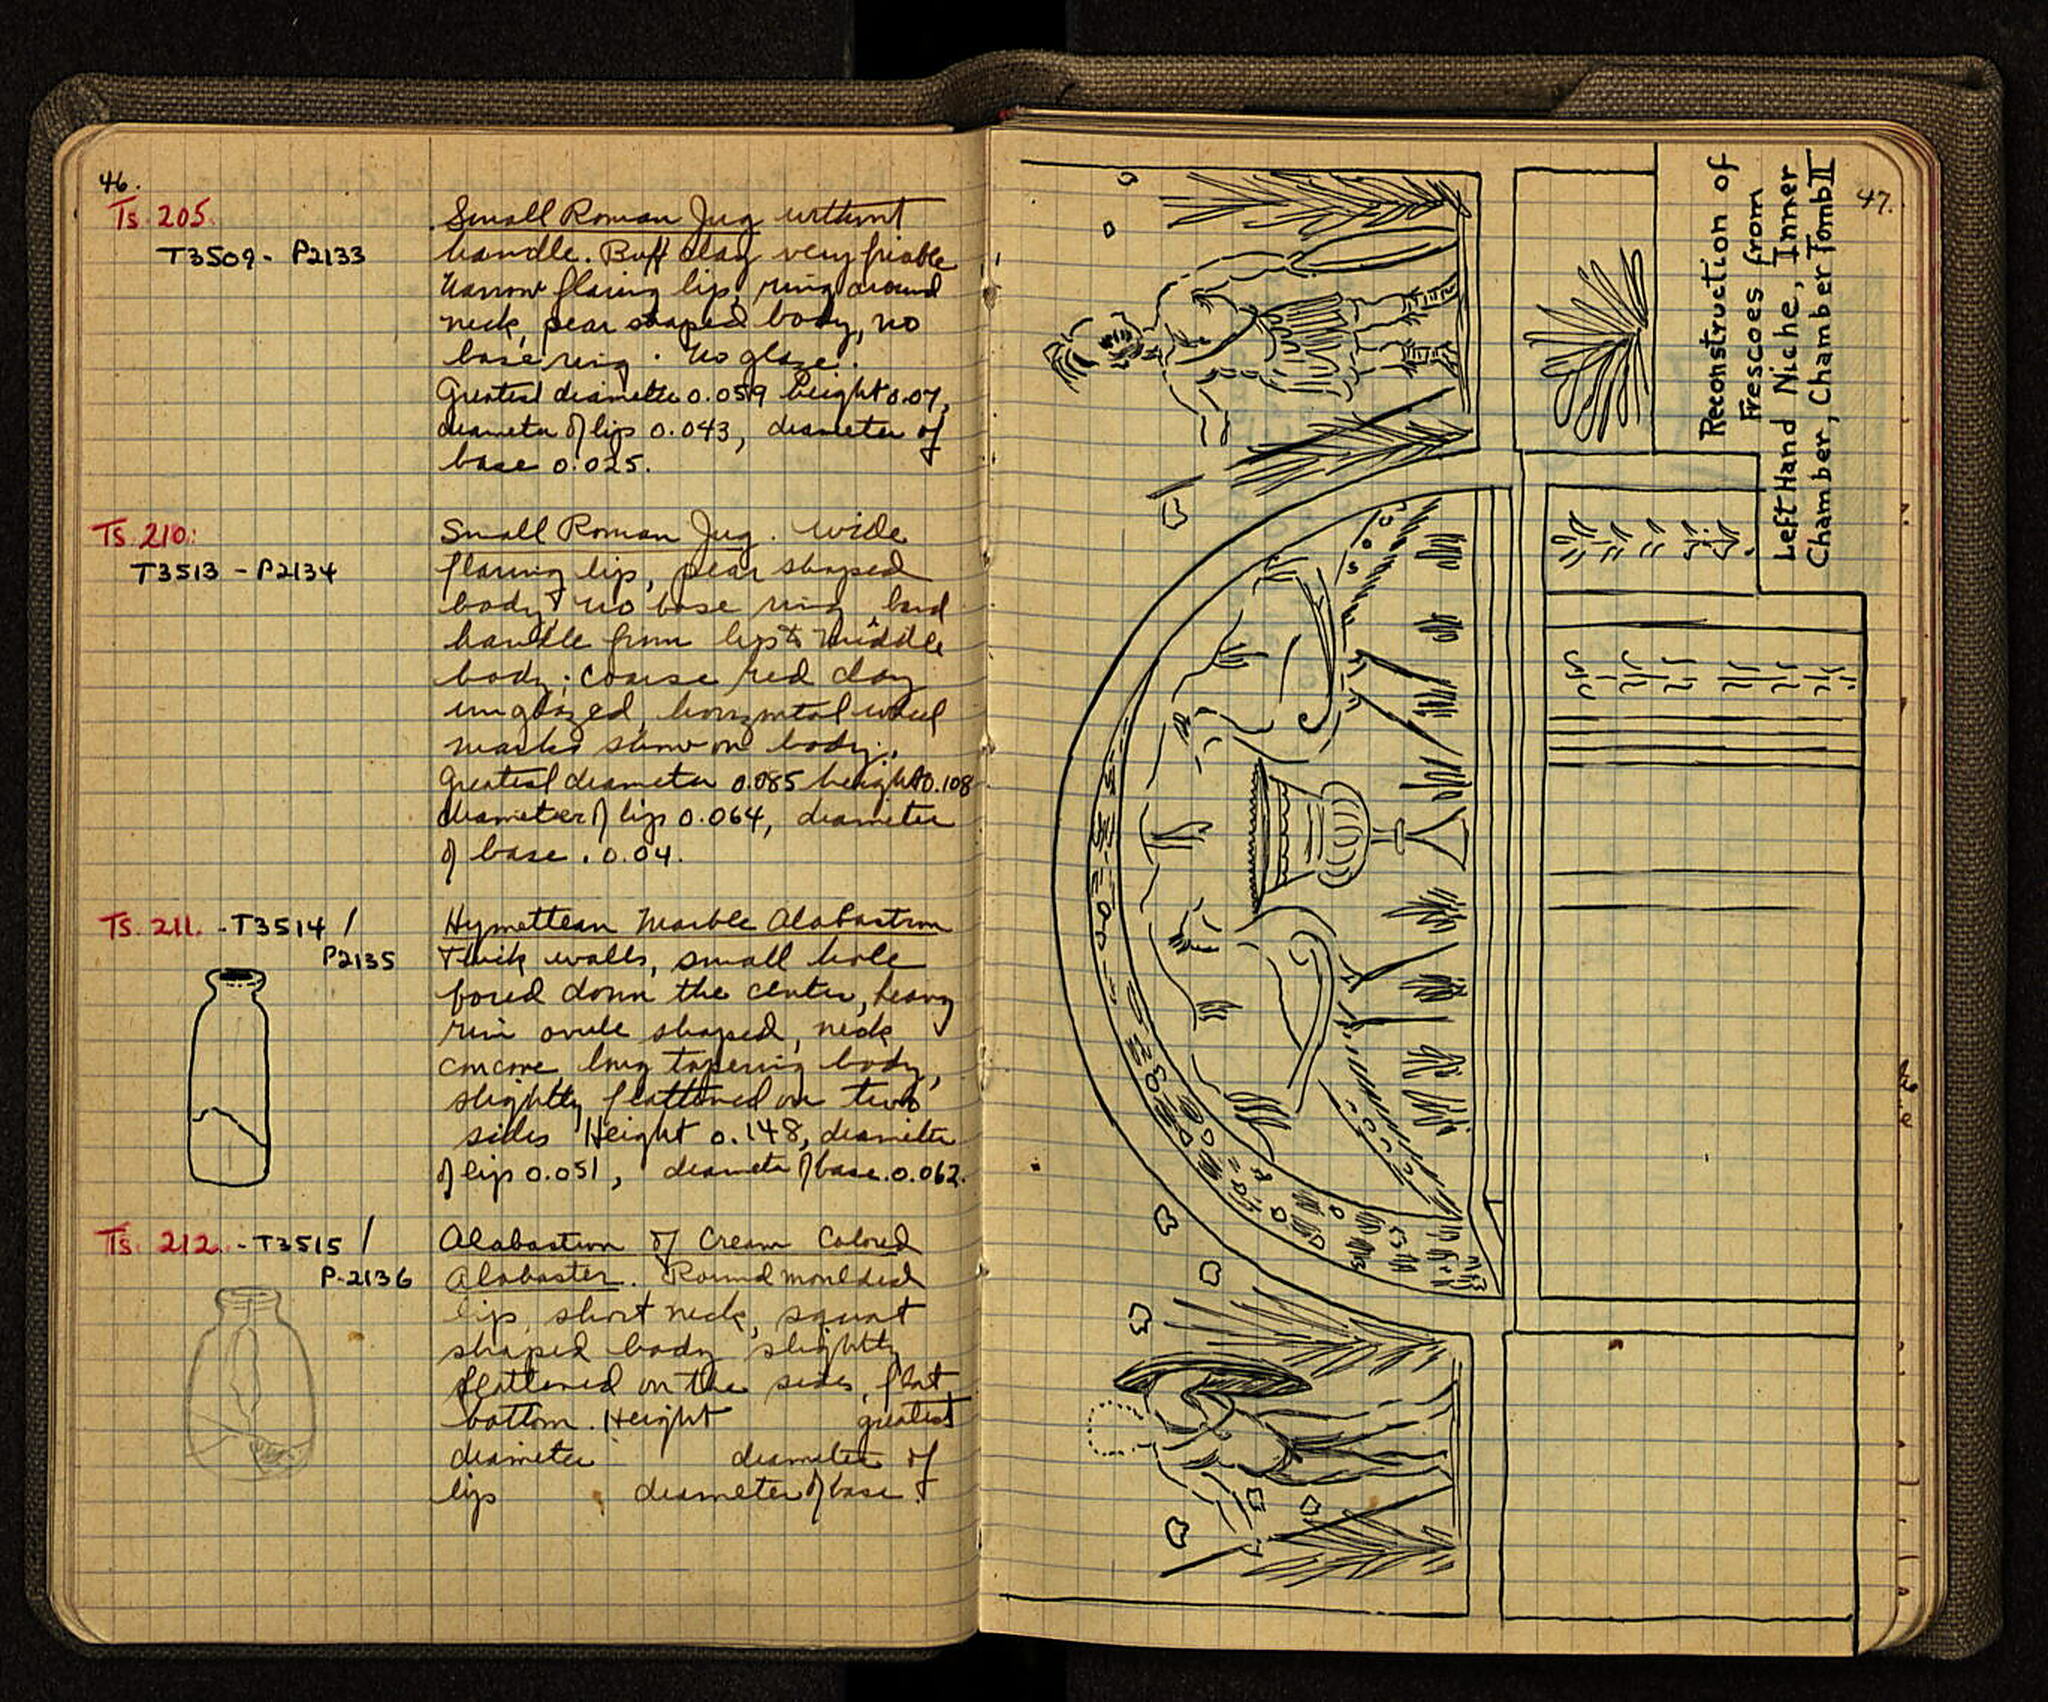 46.
Ts. 205.
T3509 - P2133
Small Roman Jug without
handle. Buff clay very friable
Narrow flaring lip, ring around
neck, pear shaped body, no
base ring. No glaze.
Greatest diameter 0.059 height 0.07,
diameter of lip 0.043, diameter of
base 0.025.
Ts. 210.
T3513 - P2134
Small Roman Jug. Wide
flaring lip, pear shaped
body, no base ring
handle from lip to middle
body; coarse red clay
unglazed, horizontal wheel
marks show on body.
Greatest diameter 0.085 height 0.108
diameter of lip 0.064, diameter
of base. 0.04.
Ts. 211. - T3514 /
P2135
Hymettean Marble Alabastron
Thick walls, small hole
bored down the center, heavy
rim ovule shaped, neck
concave long tapering body,
slightly flattened on two
sides Height 0.148, diameter
of lip 0.051, diameter of base. 0.062.
Ts. 212. - T3515 /
P-2136
Alabastron of Cream Colored
Alabaster. Round moulded
lip, short neck, squat
shaped body slightly
flattened on the sides, flat
bottom. Height greatest
diameter diameter of
lip diameter of base.
47.
Reconstruction of
Frescoes from
Left Hand Niche, Inner
Chamber, Chamber Tomb II